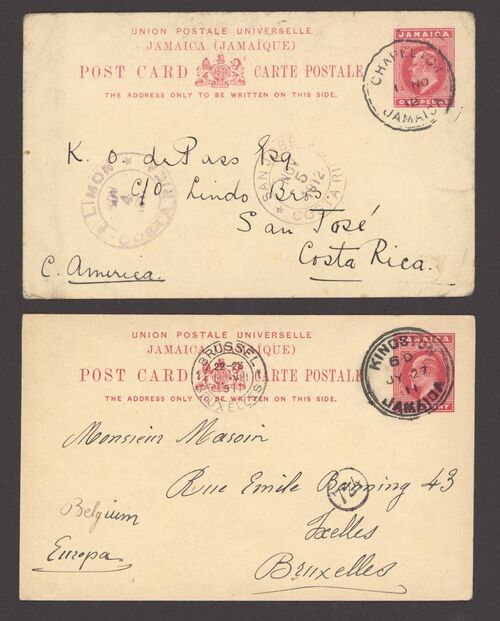 UNION POSTALE UNIVERSELLE
JAMAICA (JAMAÏQUE)
POST CARD CARTE POSTALE
THE ADDRESS ONLY TO BE WRITTEN ON THIS SIDE.
JAMAICA
ONE PENNY
CHAPELTON
NO
JAMAICA
K. O. de Pass Esq
LIMON
COSTA RICA
4
SAN JOSE
NOV
5
1912
COSTA RI
c/o Lindo Bros
San José
Costa Rica.
C. America.
UNION POSTALE UNIVERSELLE
JAMAICA
POST CARD CARTE POSTALE
THE ADDRESS ONLY TO BE WRITTEN ON THIS SIDE.
JAMAICA
NY
BRÜSSEL
22-23
BRUXELLES
KINGSTON
6D
JY 27
11
JAMAICA
Monsieur Masoin
Rue Emile Banning 43
T24
Ixelles
Belgium
Europa
Bruxelles